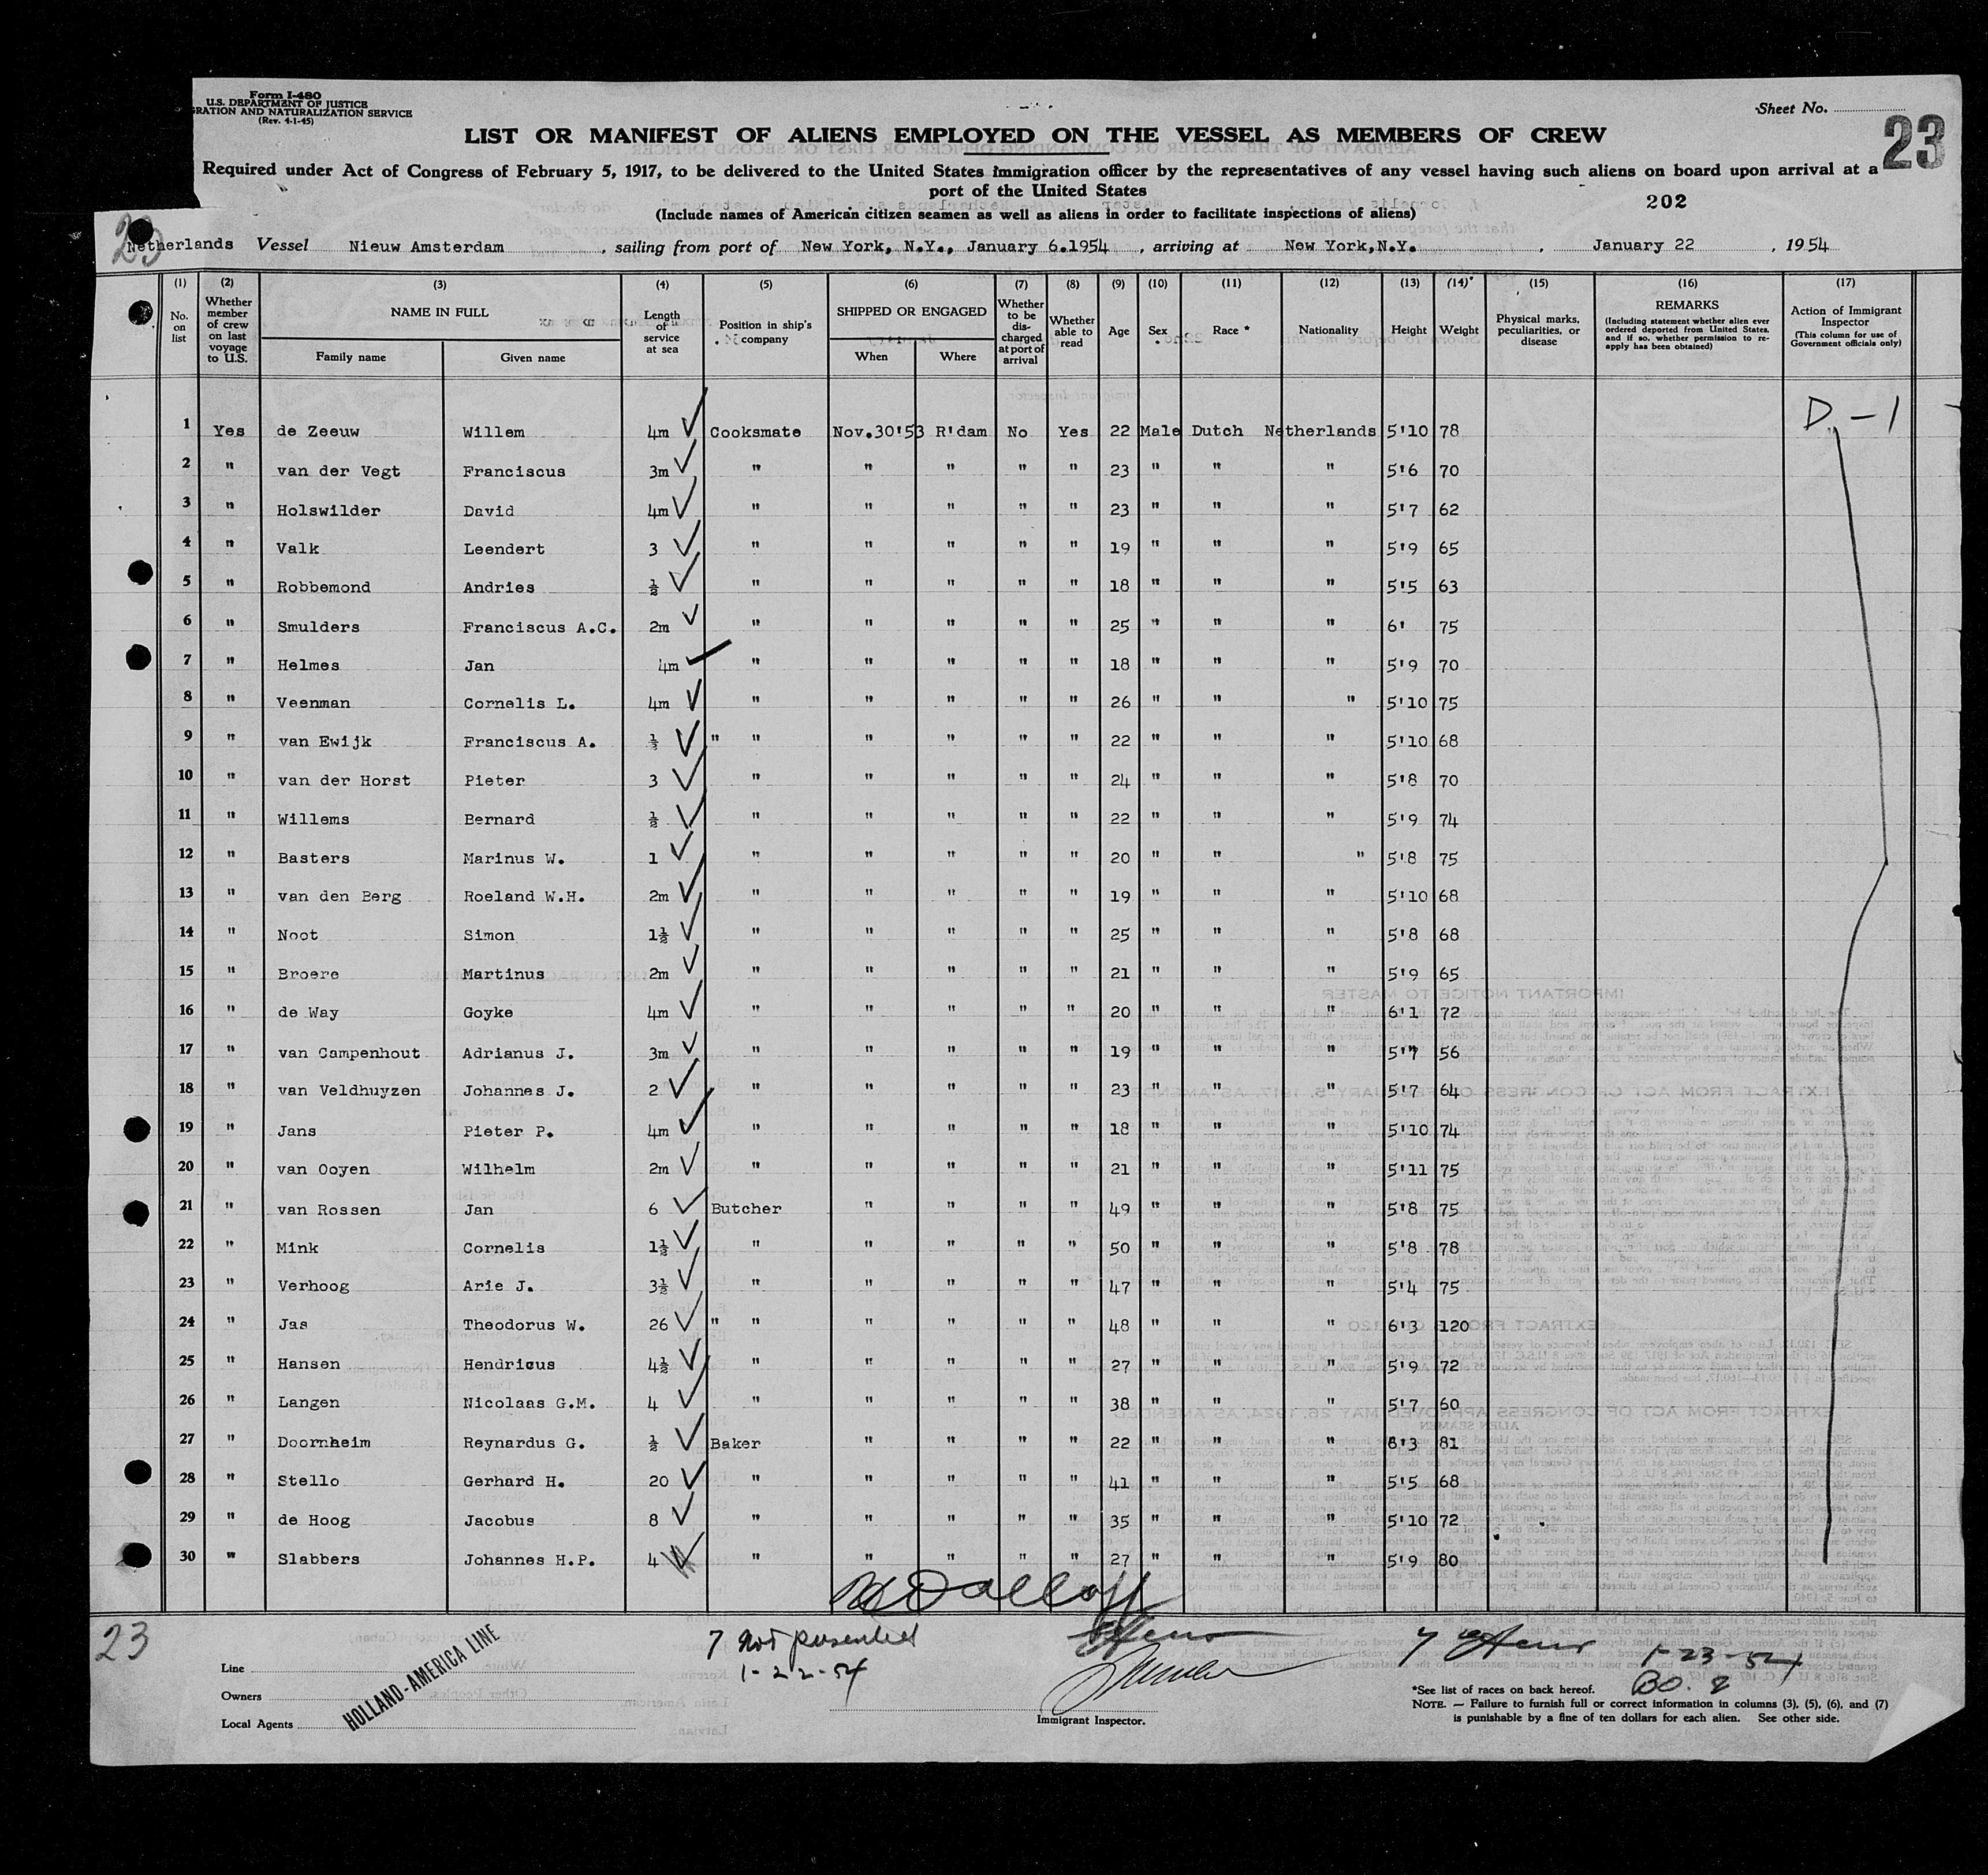 Form I-480
U.S. DEPARTMENT OF JUSTICE
GRATION AND NATURALIZATION SERVICE
(Rev. 4-1-45)
Sheet No.
23
LIST OR MANIFEST OF ALIENS EMPLOYED ON THE VESSEL AS MEMBERS OF CREW
Required under Act of Congress of February 5, 1917, to be delivered to the United States Immigration officer by the representatives of any vessel having such aliens on board upon arrival at a
port of the United States
202
(Include names of American citizen seamen as well as aliens in order to facilitate inspections of aliens)
Netherlands Vessel Nieuw Amsterdam , sailing from port of New York, N.Y., January 6.1954 , arriving at New York,N.Y. , January 22 , 1954
(1) No. on list
(2) Whether member of crew on last voyage to U.S.
(3) NAME IN FULL Family name Given name
(4) Length of service at sea
(5) Position in ship's company
(6) SHIPPED OR ENGAGED When Where
(7) Whether to be discharged at port of arrival
(8) Whether able to read
(9) Age
(10) Sex
(11) Race *
(12) Nationality
(13) Height
(14) Weight
(15) Physical marks, peculiarities, or disease
(16) REMARKS (Including statement whether alien ever ordered deported from United States, and if so, whether permission to re-apply has been obtained)
(17) Action of Immigrant Inspector (This column for use of Government officials only)
D - 1
1 Yes de Zeeuw Willem 4m ✓ Cooksmate Nov.30'53 R'dam No Yes 22 Male Dutch Netherlands 5'10 78
2 " van der Vegt Franciscus 3m ✓ " " " " " 23 " " " 5'6 70
3 " Holswilder David 4m ✓ " " " " " 23 " " " 5'7 62
4 " Valk Leendert 3 ✓ " " " " " 19 " " " 5'9 65
5 " Robbemond Andries ½ ✓ " " " " " 18 " " " 5'5 63
6 " Smulders Franciscus A.C. 2m ✓ " " " " " 25 " " " 6' 75
7 " Helmes Jan 4m ✓ " " " " " 18 " " " 5'9 70
8 " Veenman Cornelis L. 4m ✓ " " " " " 26 " " " 5'10 75
9 " van Ewijk Franciscus A. ½ ✓ " " " " " " 22 " " " 5'10 68
10 " van der Horst Pieter 3 ✓ " " " " " 24 " " " 5'8 70
11 " Willems Bernard ½ ✓ " " " " " 22 " " " 5'9 74
12 " Basters Marinus W. 1 ✓ " " " " " 20 " " " 5'8 75
13 " van den Berg Roeland W.H. 2m ✓ " " " " " 19 " " " 5'10 68
14 " Noot Simon 1½ ✓ " " " " " 25 " " " 5'8 68
15 " Broere Martinus 2m ✓ " " " " " 21 " " " 5'9 65
16 " de Way Goyke 4m ✓ " " " " " 20 " " " 6'1 72
17 " van Campenhout Adrianus J. 3m ✓ " " " " " 19 " " " 5'7 56
18 " van Veldhuyzen Johannes J. 2 ✓ " " " " " 23 " " " 5'7 64
19 " Jans Pieter P. 4m ✓ " " " " " 18 " " " 5'10 74
20 " van Ooyen Wilhelm 2m ✓ " " " " " 21 " " " 5'11 75
21 " van Rossen Jan 6 ✓ Butcher " " " " 49 " " " 5'8 75
22 " Mink Cornelis 1½ ✓ " " " " " 50 " " " 5'8 78
23 " Verhoog Arie J. 3½ ✓ " " " " " 47 " " " 5'4 75
24 " Jas Theodorus W. 26 ✓ " " " " " " 48 " " " 6'3 120
25 " Hansen Hendricus 4½ ✓ " " " " " 27 " " " 5'9 72
26 " Langen Nicolaas G.M. 4 ✓ " " " " " 38 " " " 5'7 60
27 " Doornheim Reynardus G. ½ ✓ Baker " " " " 22 " " " 6'3 81
28 " Stello Gerhard H. 20 ✓ " " " " " 41 " " " 5'5 68
29 " de Hoog Jacobus 8 ✓ " " " " " 35 " " " 5'10 72
30 " Slabbers Johannes H.P. 4 ✓ " " " " " 27 " " " 5'9 80
23
7 not presented
1-22-54
7
1-23-54
BO. 2
Line
Owners
Local Agents
HOLLAND-AMERICA LINE
Immigrant Inspector.
*See list of races on back hereof.
NOTE. — Failure to furnish full or correct information in columns (3), (5), (6), and (7)
is punishable by a fine of ten dollars for each alien. See other side.